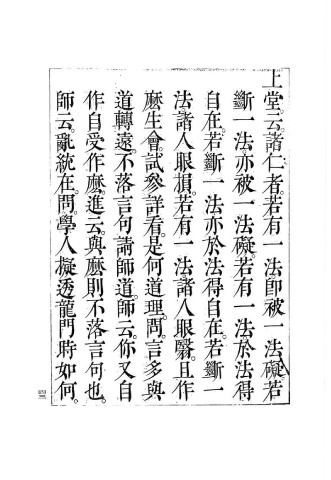 上堂云。諸仁者。若有一法卽被一法礙。若
斷一法亦被一法礙。若有一法於法得
自在。若斷一法亦於法得自在。若斷一
法諸人眼損。若有一法諸人眼翳。且作
麽生會。試參詳看。是何道理。問。言多與
道轉遠。不落言句請師道。師云。你又自
作自受作麽。進云。與麽則不落言句也。
師云。亂統在。問。學人擬透龍門時如何。